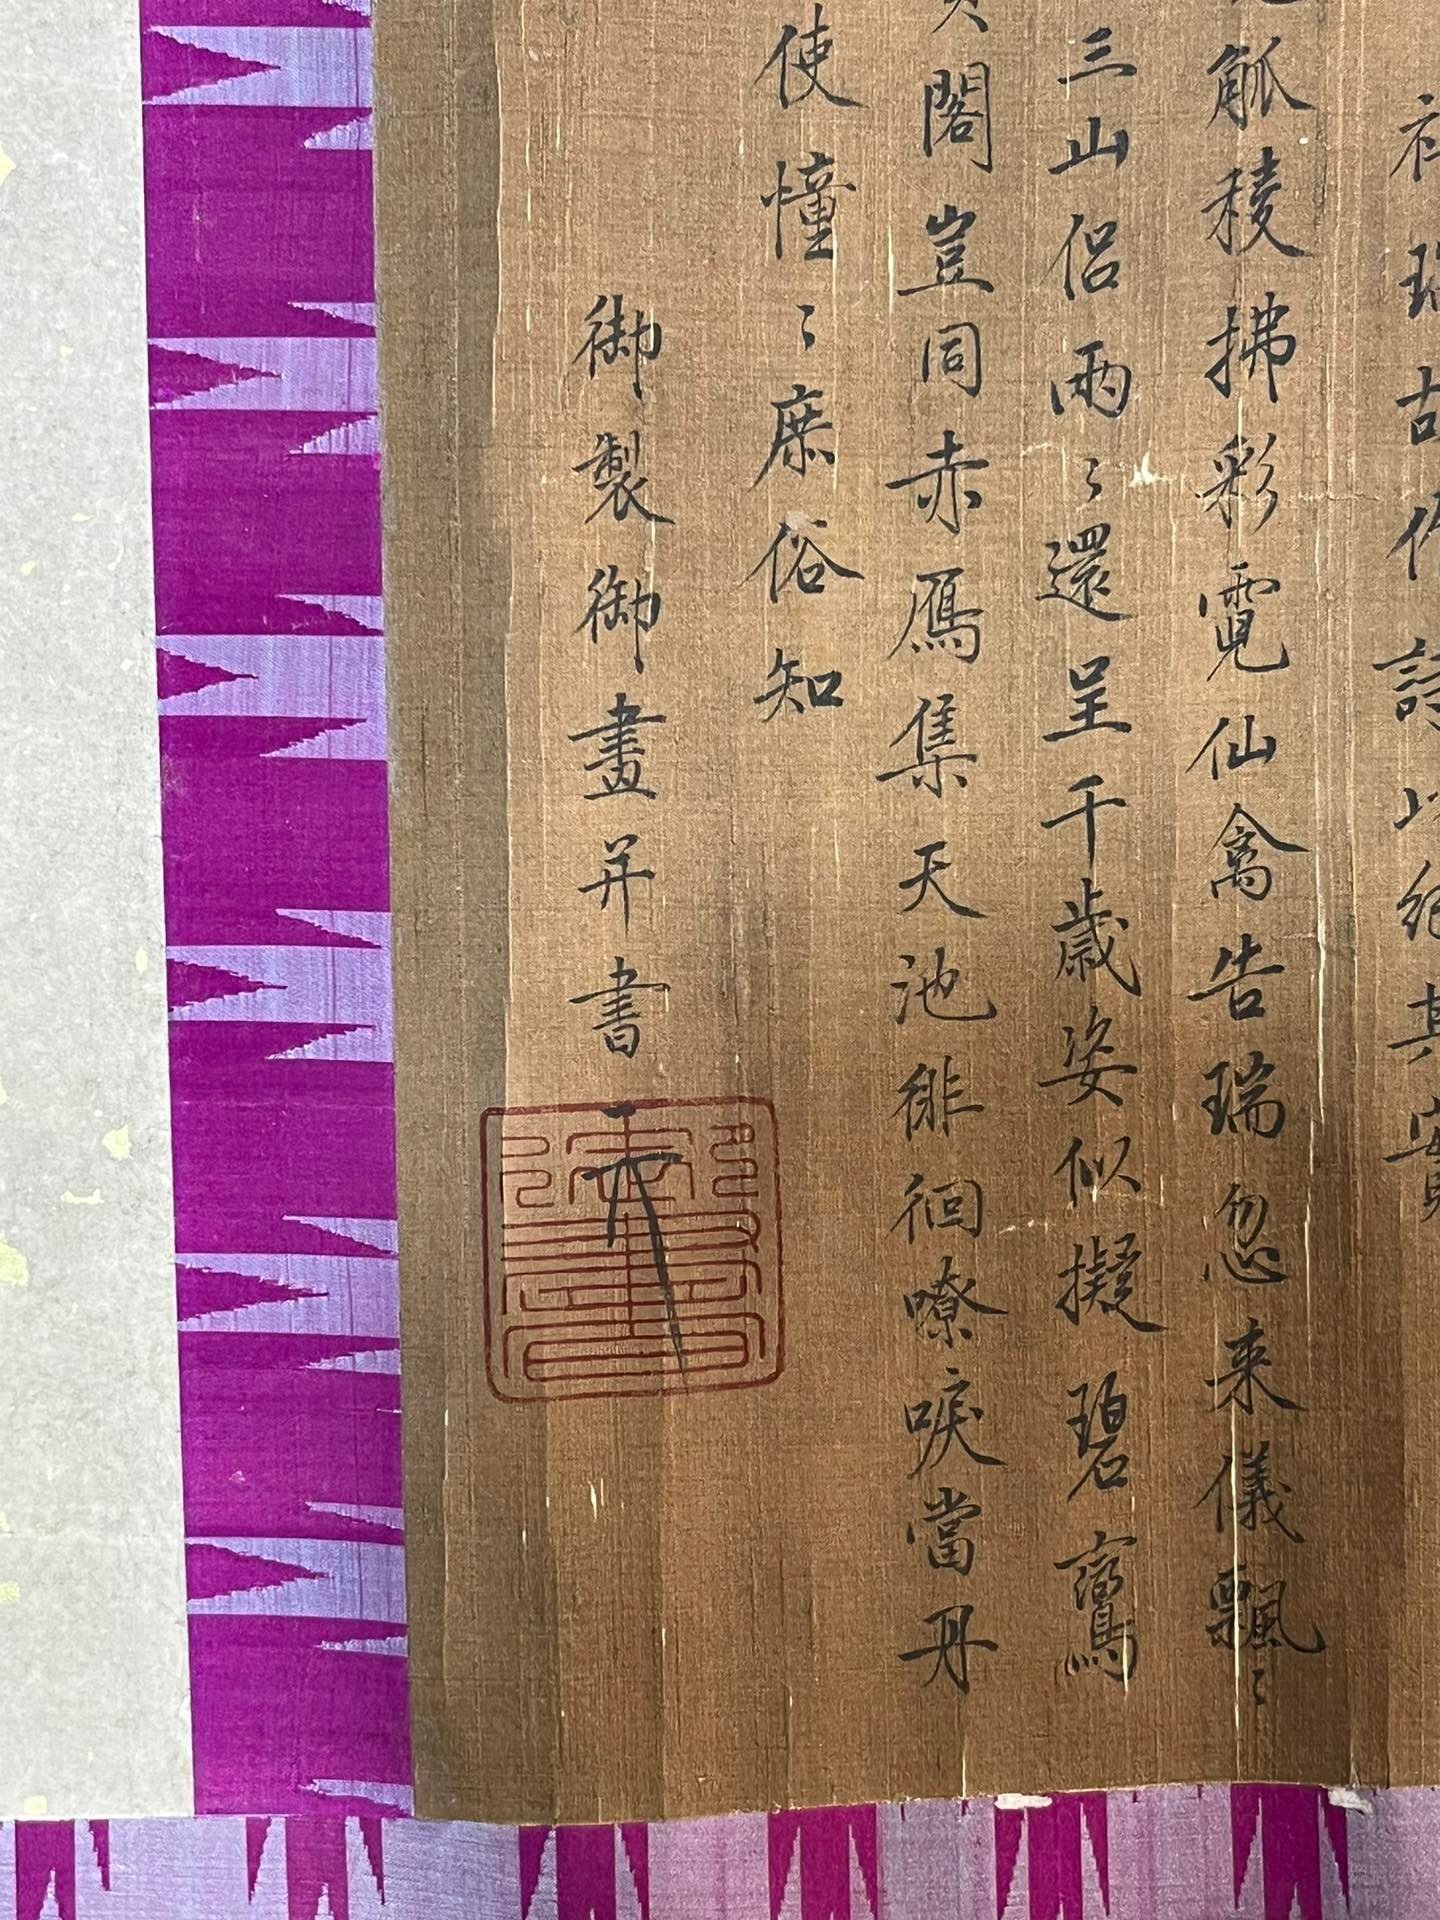 故作詩以紀其實
觚稜拂彩霓仙禽告瑞忽来儀飄〻
三山侶兩〻還呈千歲姿似擬碧鸞
閣豈同赤鴈集天池徘徊嘹唳當丹
使憧〻庶俗知
御製御畫并書